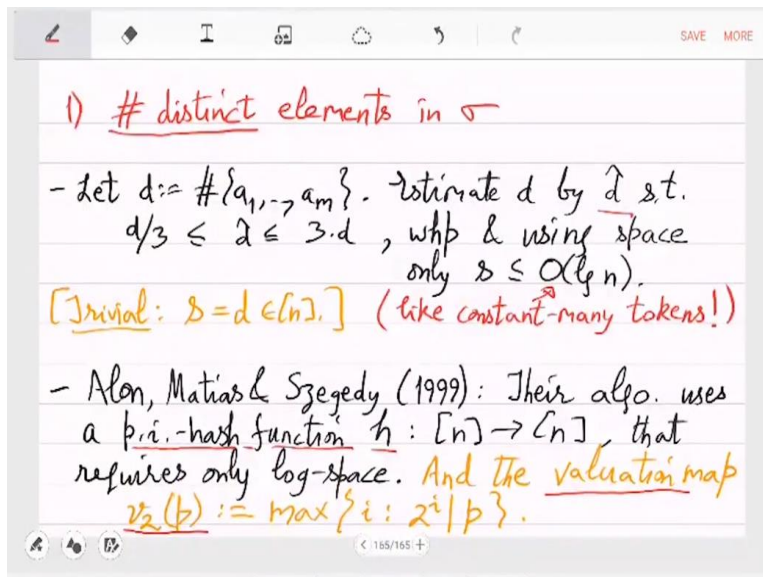 SAVE MORE
1) # distinct elements in σ
- Let d:= #{a₁,..,aₘ}. Estimate d by d̂ s.t.
d/3 ≤ d̂ ≤ 3·d , whp & using space
only s ≤ O(lg n).
[Trivial: s = d ∈ [n].] (like constant-many tokens!)
- Alon, Matias & Szegedy (1999): Their algo. uses
a p.i.-hash function h : [n] → [n], that
requires only log-space. And the valuation map
v₂(p) := max{i : 2ⁱ | p}.
< 165/165 +